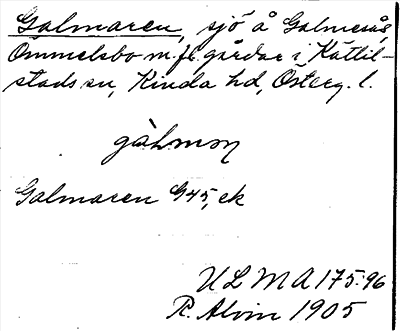 Galmaren, sjö å Galmesås,
Ommelsbo m. fl. gårdar i Kättil-
stads sn, Kinda hd, Österg. l.
gàlmɑn
Galmaren G45, ek
ULMA 175:96
R. Alvin 1905